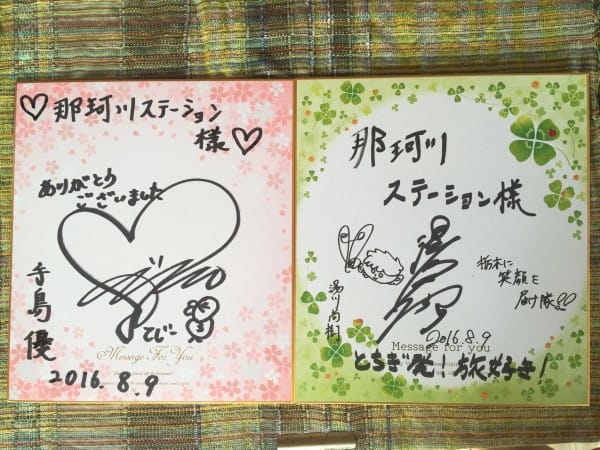 ♡那珂川ステーション
様♡
ありがとう
ございました
手島
優
てじー
Message For You
2016.8.9
那珂川
ステーション様
湯川尚樹
栃木に
笑顔を
届け隊!!
2016.8.9
Message for you
とちぎ発!旅好き!